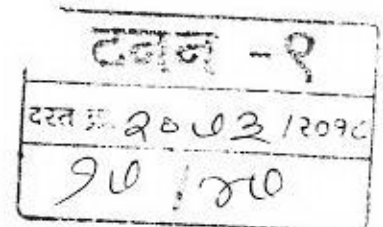 टनन - १
दस्त क्र. २०७३ /२०१८
१७ / ४७